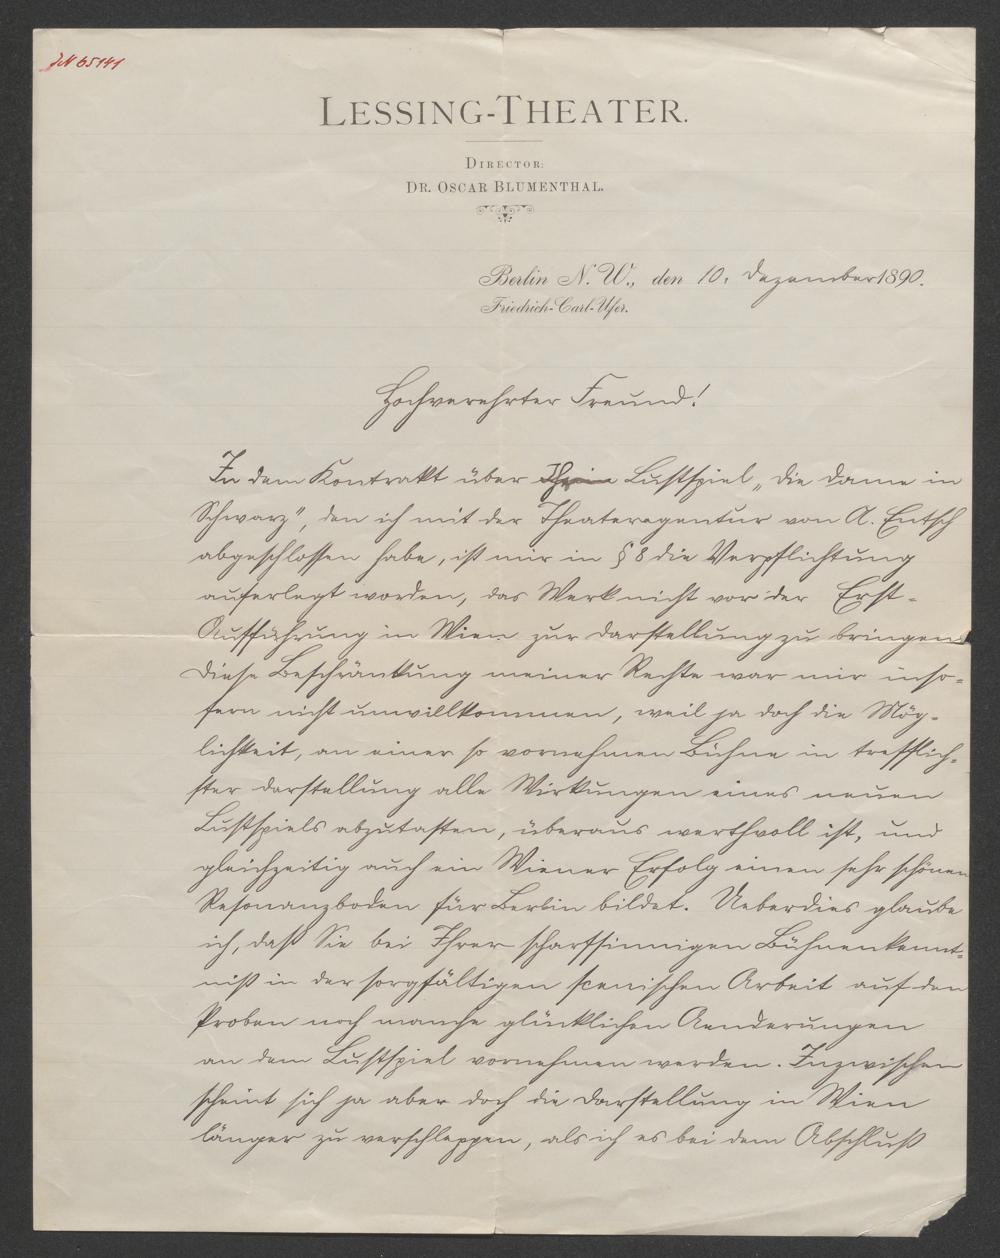 JN 65141
LESSING-THEATER.
DIRECTOR:
DR. OSCAR BLUMENTHAL.
Berlin N. W., den 10. Dezember 1890.
Friedrich-Carl-Ufer.
Hochverehrter Freund!
In dem Kontrakt über Lustspiel „Die Dame in
Schwarz", den ich mit der Theateragentur von A. Entsch
abgeschlossen habe, ist mir in § 8 die Verpflichtung
auferlegt worden, das Werk nicht vor der Erst-
Aufführung in Wien zur Darstellung zu bringen.
Diese Beschränkung meiner Rechte war mir inso-
fern nicht unwillkommen, weil ja doch die Mög-
lichkeit, an einer so vornehmen Bühne in trefflich-
ster Darstellung alle Wirkungen eines neuen
Lustspiels abzutasten, überaus werthvoll ist, und
gleichzeitig auch ein Wiener Erfolg einen sehr schönen
Resonanzboden für Berlin bildet. Ueberdies glaube
ich, daß Sie bei Ihrer scharfsinnigen Bühnenkennt-
niß in der sorgfältigen scenischen Arbeit auf den
Proben noch manche glücklichen Aenderungen
an dem Lustspiel vornehmen werden. Inzwischen
scheint sich ja aber doch die Darstellung in Wien
länger zu verschleppen, als ich es bei dem Abschluß